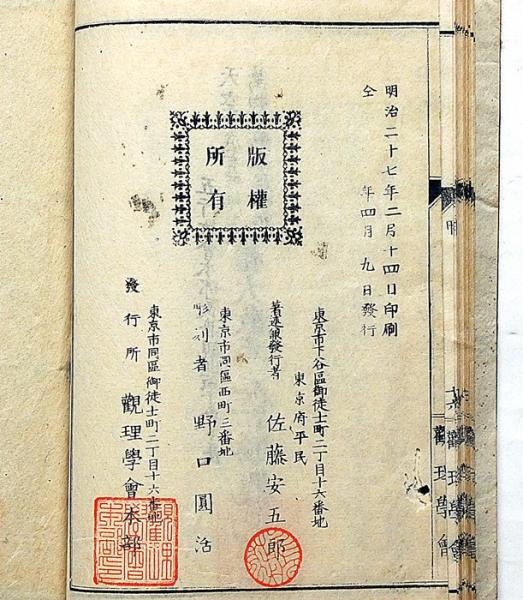 明治二十七年二月十四日印刷
仝 年四月九日發行
版權
所有
東京市下谷區御徒士町二丁目十六番地
東京府平民
著述兼發行者 佐藤安五郎
東京市同區西町三番地
彫刻者 野口圓活
東京市同區御徒士町二丁目十六番地
發行所 觀理學會本部
觀理學會